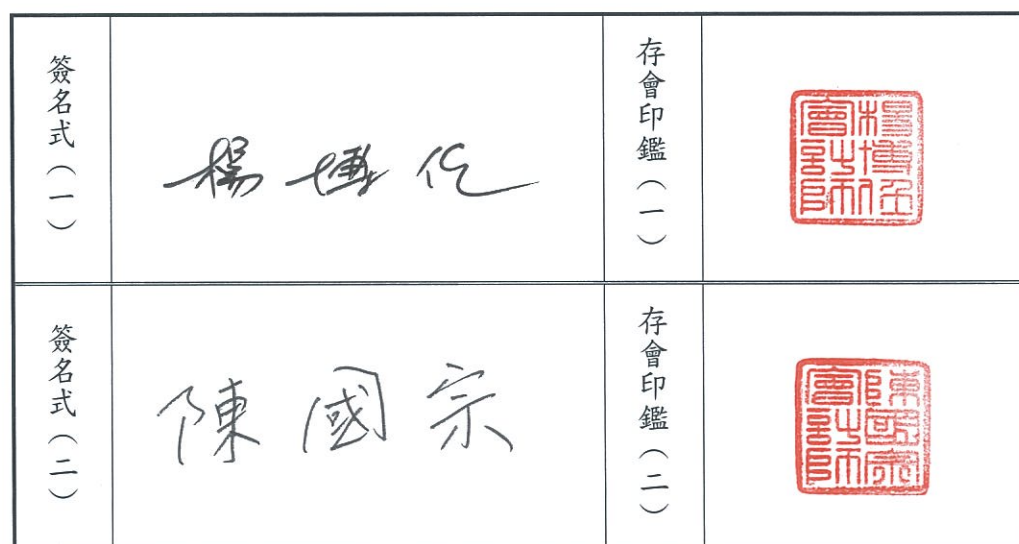 簽名式（一）
楊博任
存會印鑑（一）
楊博任會計師
簽名式（二）
陳國宗
存會印鑑（二）
陳國宗會計師